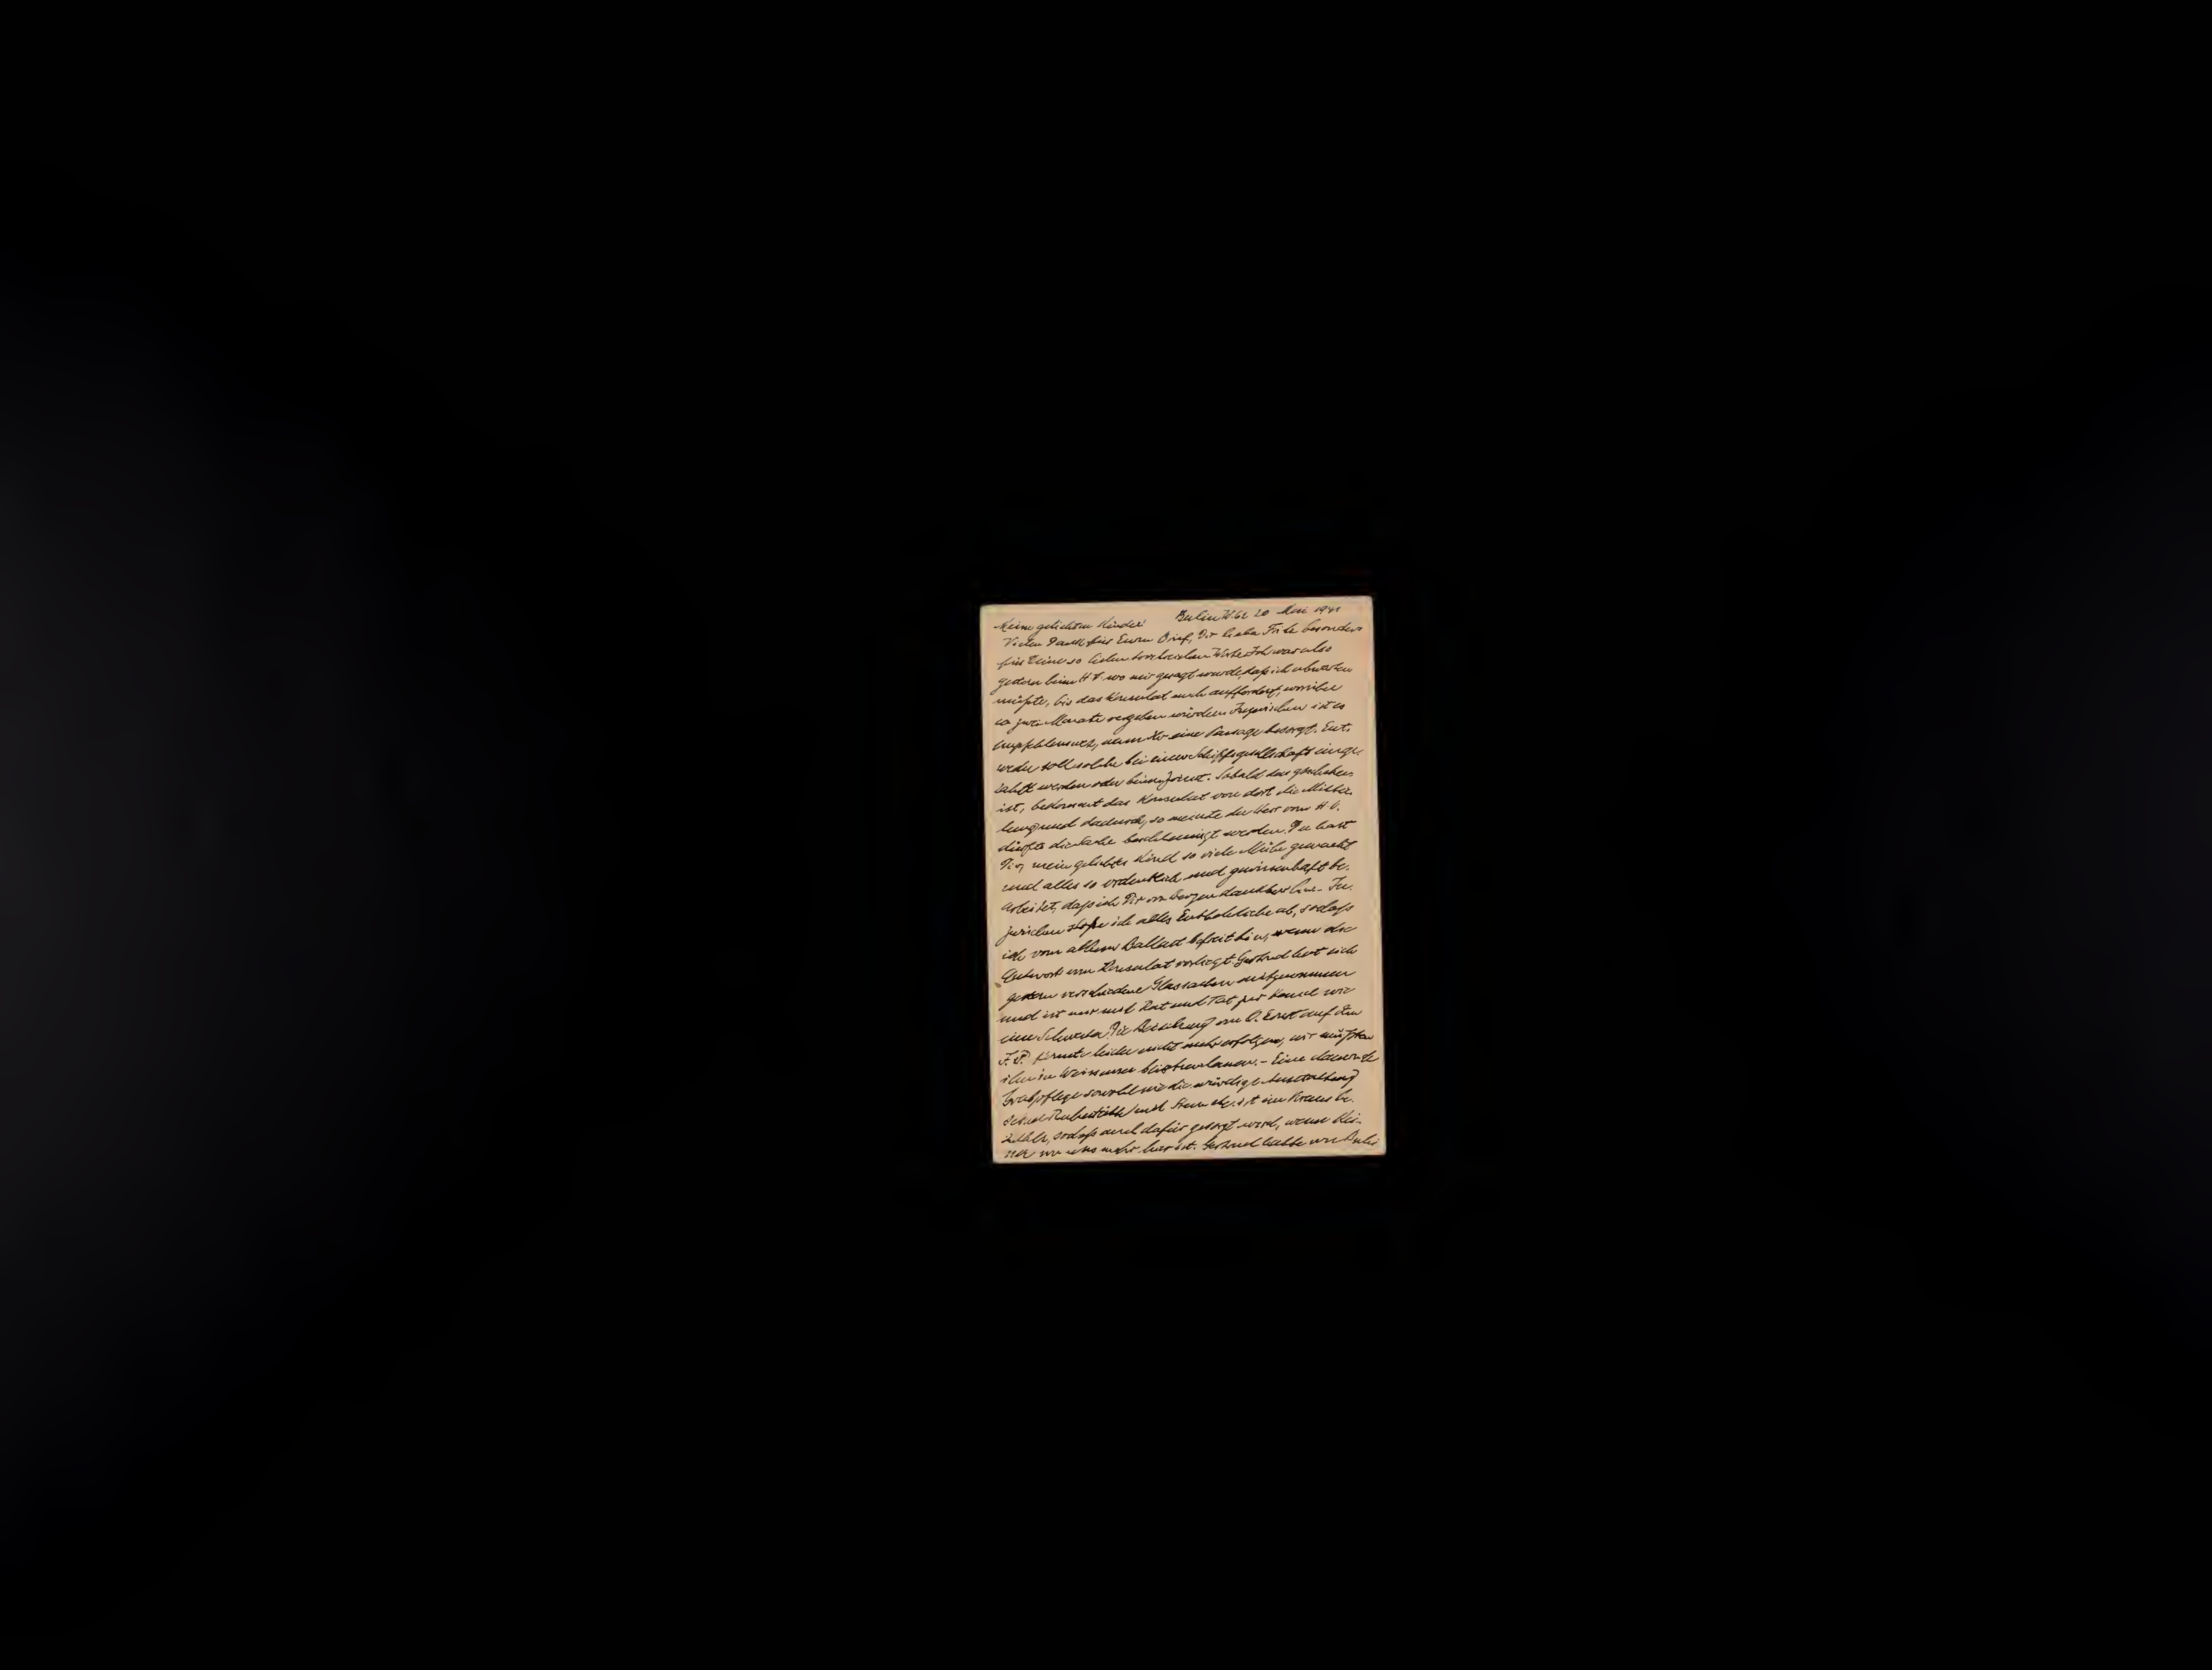 Berlin W.62 20 Mai 1941
Meine geliebten Kinder!
Vielen Dank für Euren Brief, Dir liebe besonders
für Deine so lieben Worte. Ich war also
gestern beim H V. wo mir gesagt wurde, daß ich abwarten
müßte, bis das Konsulat mich auffordert, worüber
ca zwei Monate vergehen würden. Inzwischen ist es
empfehlenswert, wenn Ihr eine Passage besorgt. Ent-
weder soll solche bei einer Schiffsgesellschaft einge-
zahlt werden oder beim Joint. Sobald das geschehen
ist, bekommt das Konsulat von dort die Mittei-
lung und dadurch, so meinte der Herr vom H V.
dürfte die Sache beschleunigt werden. Du hast
Dir, mein geliebtes Kind so viele Mühe gemacht
und alles so ordentlich und gewissenhaft be-
arbeitet, daß ich Dir von Herzen dankbar bin. - In-
zwischen stoße ich alles Entbehrliche ab, sodaß
ich von allem Ballast befreit bin, wenn die
Antwort vom Konsulat vorliegt. Gertrud hat sich
gestern verschiedene Glassachen mitgenommen
und ist mir mit Rat und Tat zur Hand wie
eine Schwester. Die Beisetzung von O. Ernst auf dem
J. F. konnte leider nicht mehr erfolgen, wir mußten
ihn in Weissensee lassen. - Eine dauernde
Grabpflege sowohl wie die würdige Ausstattung
seiner Ruhestätte mit Stein etc. ist im Voraus be-
zahlt, sodaß auch dafür gesorgt wird, wenn Kei-
ner von uns mehr hier ist. Gertrud hatte von